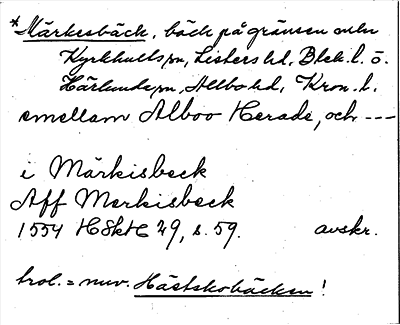 *Märkesbäck, bäck på gränsen mellan
Kyrkhults sn, Listers hd, Blek. l. o.
Härlunda sn, Allbo hd, Kron. l.
emellam Alboo Herade, och ---
i Märkisbeck
Aff Merkisbeck
1554 HSkH 29, s. 59. avskr.
trol. = nuv. Hästskobäcken!